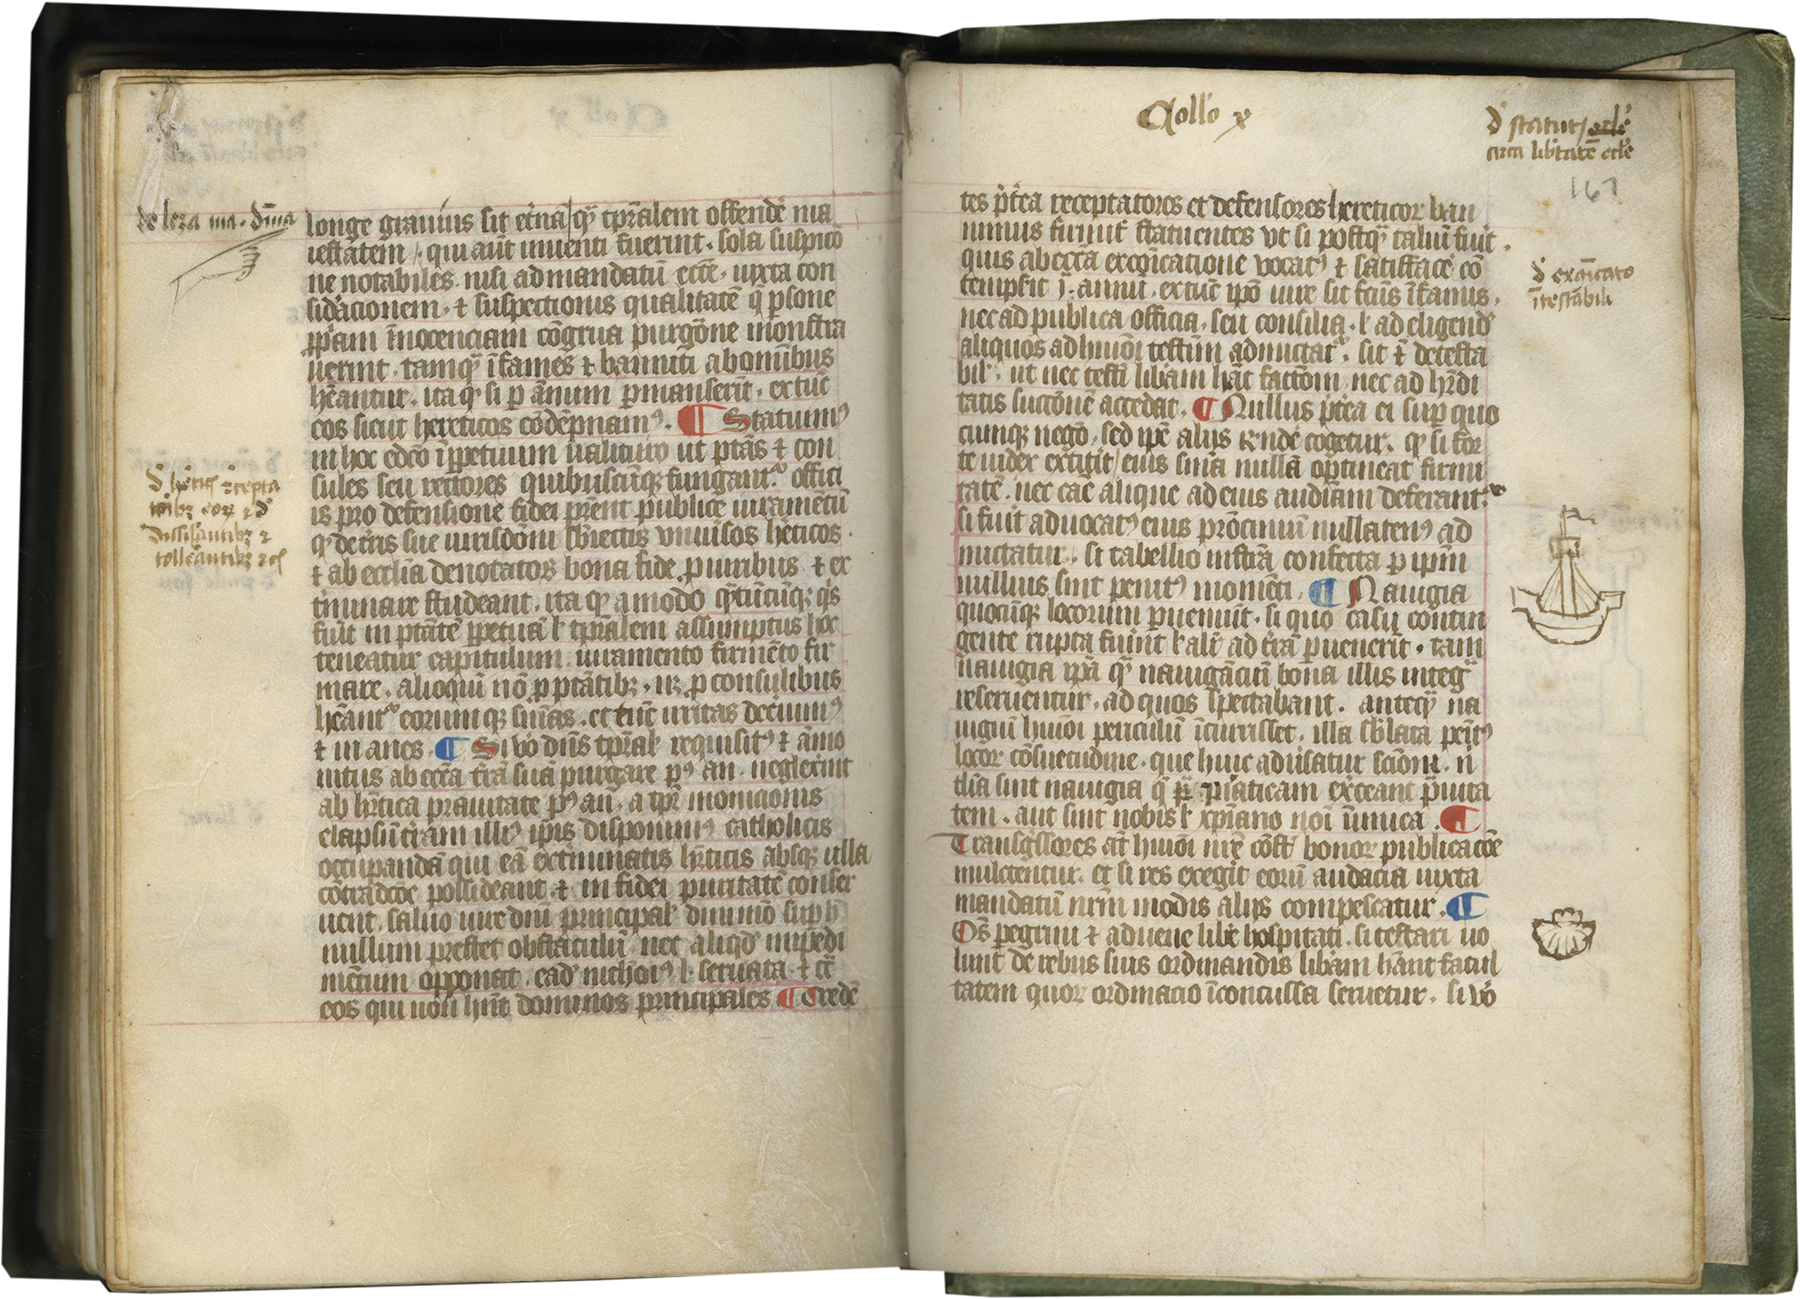 de leza ma. diuīa
longe grauius sit et̓nā q̄ tp̄ralem offende ma
iestatem / qui aūt inuenti fuerint. sola suspicō
ne notabiles. nisi ad mandatū eccē. iuxta con
sid̓acionem. ⁊ suspectionis qualitatē q̄ ꝑsone
ꝓp̄am īnocenciam cōgrua purgōne monstra
uerint. tamq̄ īfames ⁊ banniti ab om̄ibus
hēantur. ita qꝫ si ꝑ annum ꝑmanserīt. ex tūc
eos sicut hereticos cōdēpnamꝰ. ¶ Statuimꝰ
in hoc edcō īꝑpetuum ualituro ut ptās ⁊ con
sules seu rectores quibuscūqꝫ fungantꝰ offici
is pro defensione fidei prēnt publice iuramentū
qꝫ de t̄ris sue iurisdōni sb̄iectis vniuisos h̓eticos.
⁊ ab ecclīa denotatos bona fide ꝓ uiribus ⁊ ex
t̓minare studeant. ita qꝫ amodo q̄ncūqꝫ q̄s
fūit in ptātē ꝑpetuā ł tp̄ralem assumptus hoc
teneatur capitulum iuramento firmēto fir
mare. alioquī nō ꝓ ptātibꝫ. nꝫ ꝓ consulibus
hēantꝰ eorumqꝫ sniās. ex tūc irritas decīimꝰ
⁊ inanes. ¶ Si vo dn̄s tp̄ral̓ requisitꝰ ⁊ āmo
nitus ab eccā t̄rā suā purgare pꝰ an. neglex̓it
ab h̓etica prauitate pꝰ an. a tp̄r monicionis
elapsū t̄ram illiꝰ ip̄is disponimꝰ catholicis
occupandā qui eā ext̓minatis h̓eticis absqꝫ ulla
cōtradcōe possideant. ⁊ in fidei puritate conser
uent. saluo iure dn̄i principal̓ dūmō suꝑ h̓
nullum prestet obstaculū. nec aliqd̓ impedi
mētum opponat. ead̓ nichoīꝰ l. seruata ⁊ cō
eos qui non hn̄t dominos principales ¶ Credē
Collō x
d̓ statutꝭ eccl̓e
cūcti lib̓tatē eccl̓e
167
tes p̄t̓ea receptatores et defensores hereticor ban
nimus firmit̓ statuentes vt si postq̄ taliū fuit.
quis ab eccā excōicatione vocatꝰ ⁊ satisfacē cō
tempsit ī. annū. ex tūc ip̄o iure sit fc̄ūs īfamis.
nec ad publica officia. seu consilia. ł ad eligend̓
aliquos ad huiōi testīm admictatꝰ. sit ⁊ detesta
bil̓. ut nec testī libam hāt factōm. nec ad h̓edi
tatis succōnē accedat. ¶ Nullus p̄t̓ea ei sup̄ quo
cumqꝫ negō. sed ip̄e alijs rn̄dē cogetur. qꝫ si for
te iudex extitīt / eius sniā nullā optineat firmi
tatē. nec cāe alique ad eius audīam deferantꝰ.
si fuit aduocatꝰ eius prōcinuī nullatenꝰ ad
mictatur. si tabellio instrā confecta ꝑ ip̄m
nullius sint penitꝰ momēti. ¶ Nauigia
quocūqꝫ locorum ꝑuenīut. si quo casu contin
gente rupta fuīnt ł alit̓ ad t̄rā ꝑuenerīt. tam
nauigia ip̄a q̄ nauigāciū bona illis integ̓
reseruentur. ad quos spectabant. anteq̄ na
uigiū huiōi periculū īcurrisset. illa sb̄lata penitꝰ
locor cōsuetudine. que huic aduisatur scōni. n
d̓ excōicato
ītestabili
tliā sint nauigia q̄ pīaticam exceant p̄uita
tem. aut sint nobis ł xp̄iano nōi inimica. ¶
Transg̓ssores at̄ huiōi nr̄e cōst̄ bonor publicacōe
mulctentur. et si res exegit eorū audacia iuxta
mandatū nr̄m modis alijs compescatur. ¶
Om̄s peg̓rini ⁊ aduene lib̓e hospitati. si testari uo
lunt de rebus suis ordinandis lib̓am hānt facul
tatem quor ordinacio īconcussa seruetur. si vō